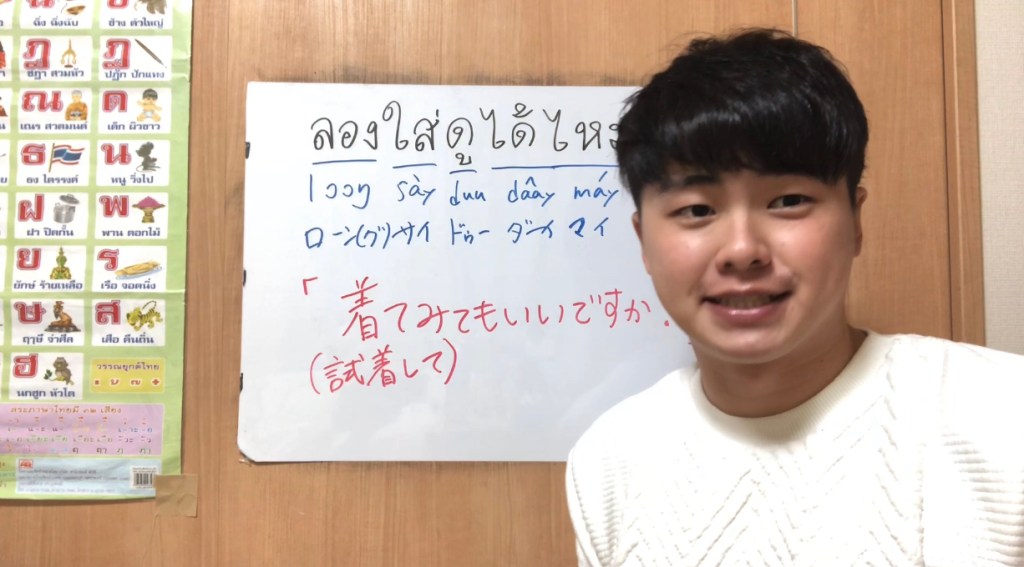 ฉิ่ง ตีดัง
ช้าง ตัวใหญ่
ฎ
ฏ
ชฎา สวมหัว
ปฏัก ปักแทง
ณ
ด
เณร สวดมนต์
เด็ก
ธ
น
ธง ไตรรงค์
หนู วิ่งไป
ฝ
พ
ฝา ปิดกั้น
พาน ดอกไม้
ย
ร
ยักษ์ ร้ายเหลือ
เรือ จอดนิ่ง
ษ
ส
ฤๅษี จำศีล
เสือ คืนถิ่น
ฮ
วรรณยุกต์ไทย
นกฮูก หัวโต
สระภาษาไทยมี ๓๒ เสียง
ลองใส่ดูได้ไหม
lɔɔŋ sày duu dâay máy
ローン(グ)サイ ドゥー ダーイ マイ
「着てみてもいいですか.
(試着して)